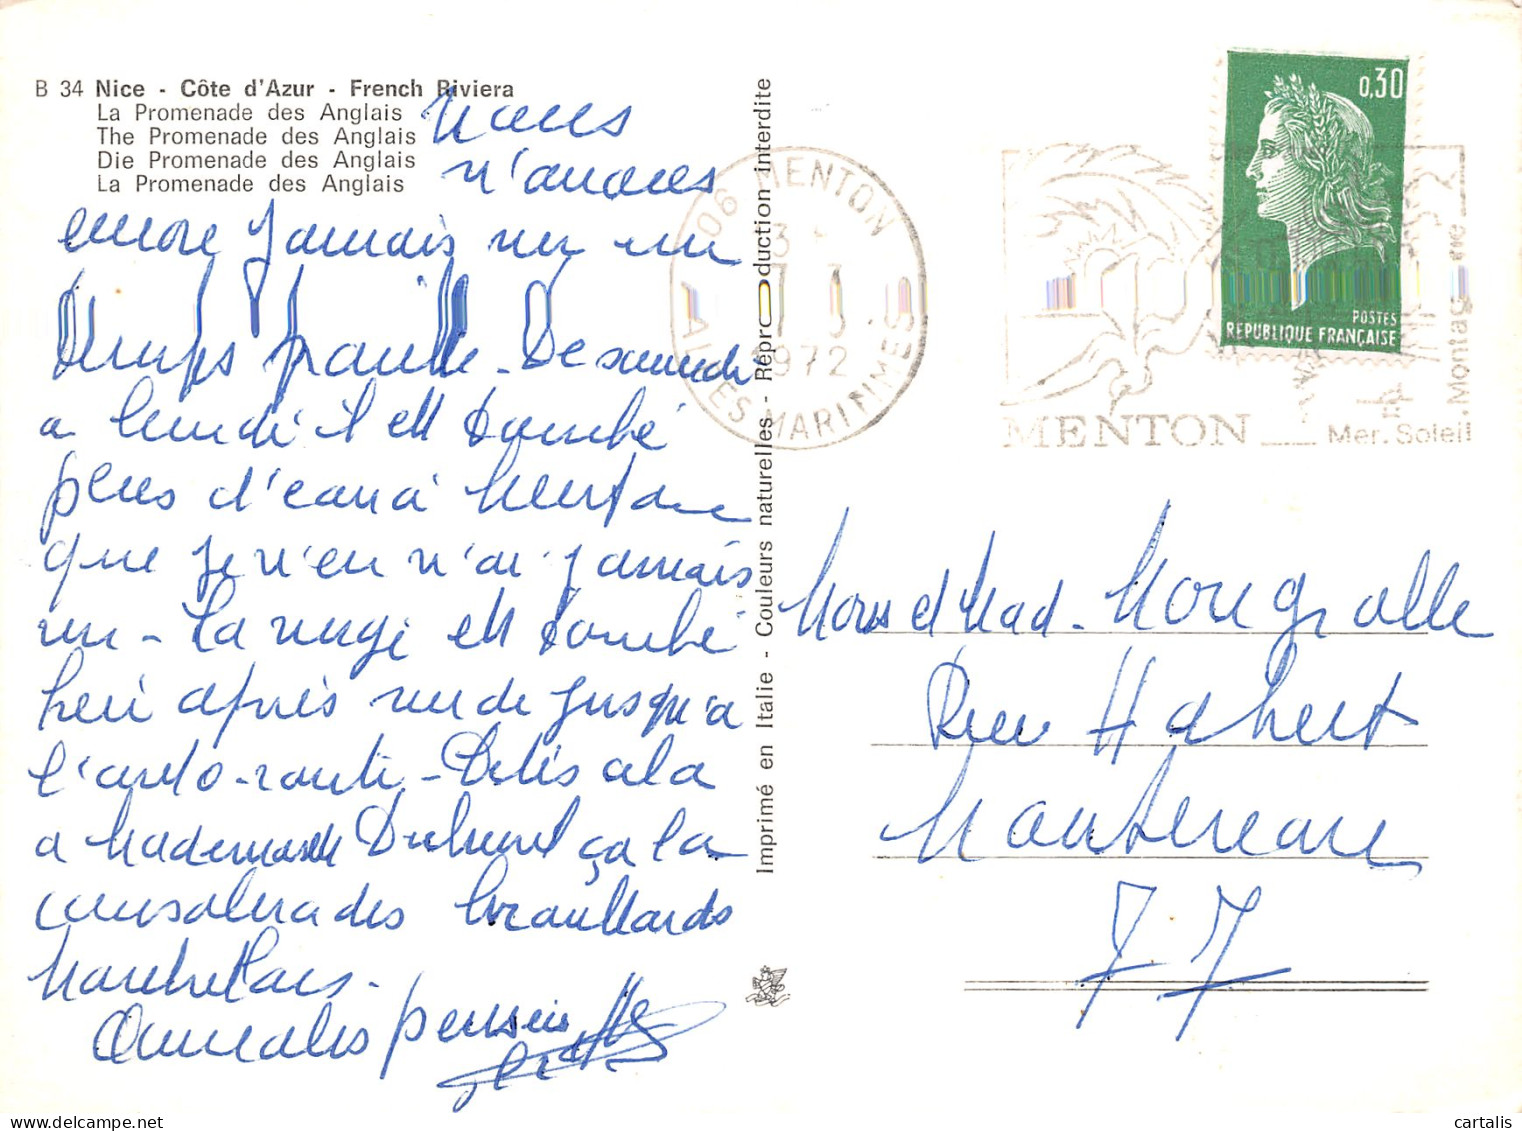 B 34 Nice - Côte d'Azur - French Riviera
La Promenade des Anglais
The Promenade des Anglais
Die Promenade des Anglais
La Promenade des Anglais
Nous
n'avons
encore jamais vu un
temps pareil - De samedi
a lundi il est tombé
plus d'eau à Menton
que je n'en n'ai jamais
vu - La neige est tombé
hier après midi jusqu'a
l'auto-route - Dites cela
a Mademoiselle ça la
consolera des brouillards
Amicales pensées
Imprimé en Italie - Couleurs naturelles - Reproduction interdite
06 MENTON
3 -
1972
ALPES MARITIMES
0,30
POSTES
REPUBLIQUE FRANÇAISE
MENTON
Mer. Soleil
.Montagne
Mons et Mad - Mongrolle
Rue Habert
Montereau
77
cartalis